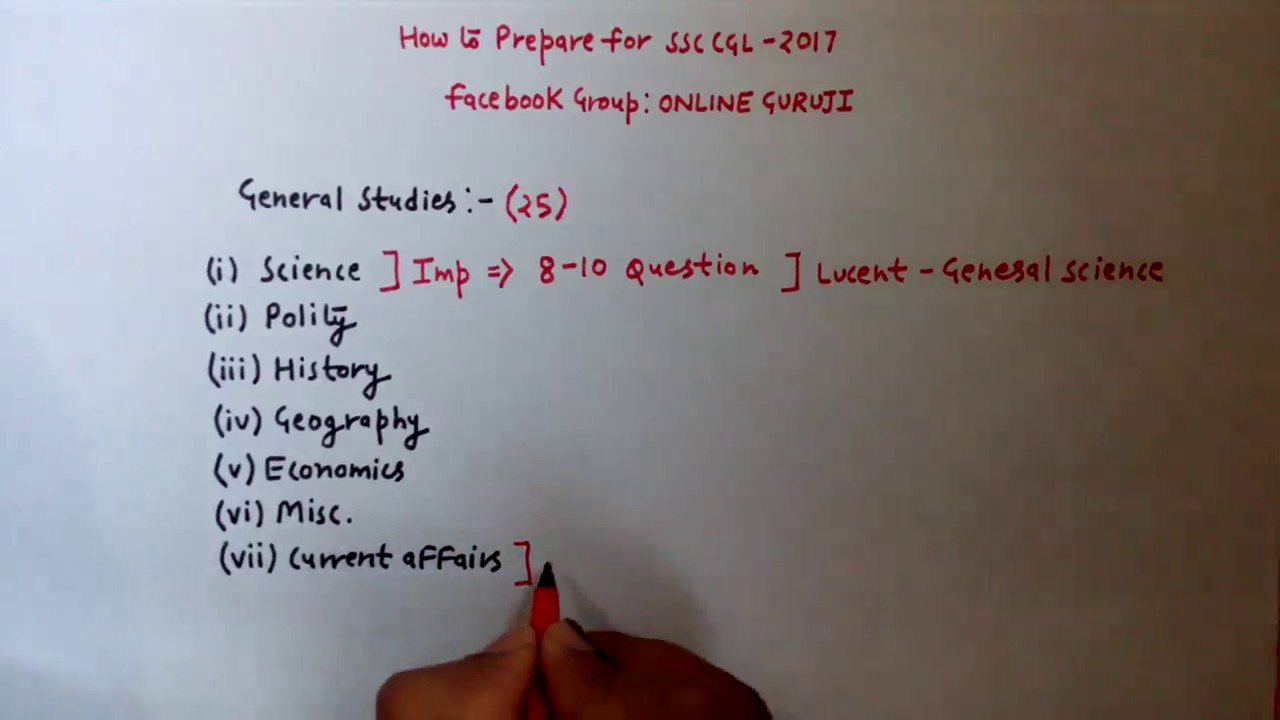 How to Prepare for SSC CGL - 2017
Facebook Group: ONLINE GURUJI
General Studies :- (25)
(i) Science ] Imp => 8-10 Question ] Lucent - General Science
(ii) Polity
(iii) History
(iv) Geography
(v) Economics
(vi) Misc.
(vii) Current affairs ]